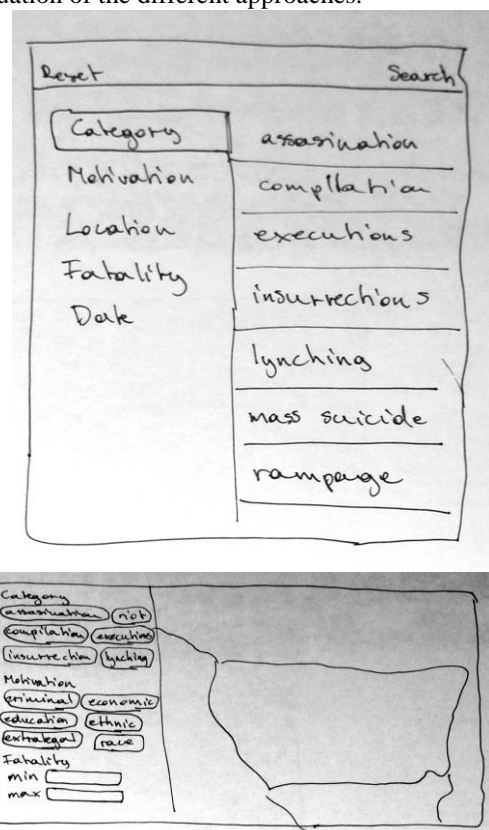 dation of the different approaches.
Reset Search
Category
Motivation
Location
Fatality
Date
assasination
compilation
executions
insurrections
lynching
mass suicide
rampage
Category
assasination riot
compilation executions
insurrection lynching
Motivation
criminal economic
education ethnic
extralegal race
Fatality
min
max